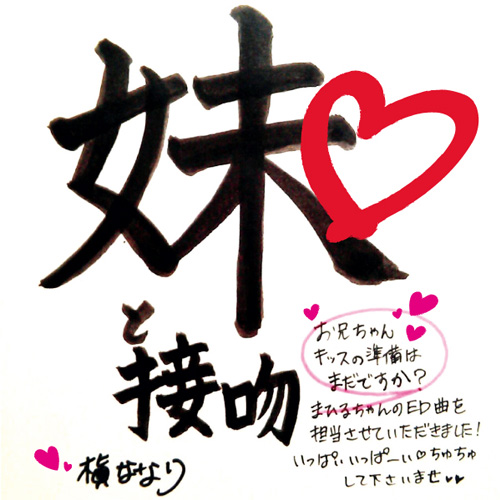 妹♡
と
接吻
お兄ちゃん
キッスの準備は
まだですか?
まひるちゃんのED曲を
担当させていただきました!
いっぱいいっぱーい♡ちゅちゅ
して下さいませ♥♥
槇ななり